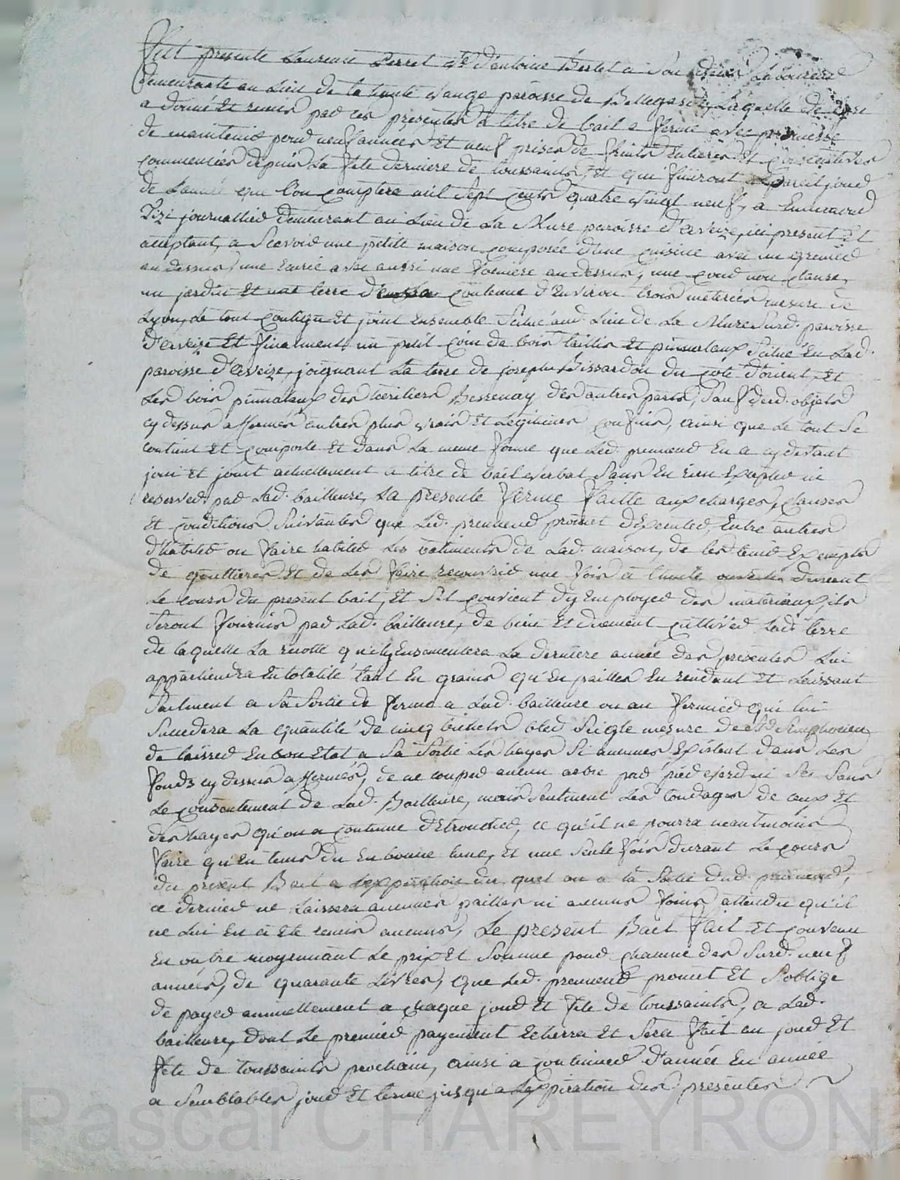 Fut presente Laurence Perret Ve d'antoine Bertet a son deces Laboureur
demeurante au Lieu de la paroisse de Bellegarde, Laquelle de gré
a donné et remis par ces presentes a titre de bail a ferme avec promesse
de maintenir pour neuf années Et neuf prises de fruits Entieres Et consecutives
commencées depuis La fete derniere de toussaints, Et qui finiront a pareil jour
de Lannée que l'on comptera mil sept cents quatre vingt neuf, a
journallier demeurant au Lieu de La Mure paroisse d'aveize, ici present Et
acceptant, a scavoir une petite maison composée d'une cuisine avec un grenier
au dessus, une Ecurie avec aussi une feniere au dessus, une cour non close,
un jardin Et une terre contenue d'Environ trois meterées mesure de
Lyon, Le tout contigu Et joint Ensemble Situé aud. Lieu de La Mure Surd. paroisse
d'aveize Et finalement un petit coin de bois taillis Et pinateaux Situé En Lad.
paroisse d'aveize, joignant La terre de joseph Bissardon du côté d'orient, Et
Les bois pinateaux des heritiers Bessenay des autres parts, Sauf desd. objets
cy dessus affermés autres plus vrais Et Legitimes confins, ainsi que Le tout Se
contient Et comporte Et dans La meme forme que Led. preneur En a cy devant
joui Et jouit actuellement a titre de bail verbal Sans En rien Excepter ni
reserver par Lad. bailleure, La presente ferme faitte aux charges, clauses
Et conditions Suivantes que Led. preneur promet d'Executer, Entre autres
d'habiter ou faire habiter Les batiments de Lad. maison, de les tenir Exempts
de gouttieres Et de Les faire recouvrir une fois à thuile ouverte durant
Le cours du present bail, Et S'il convient d'y Employer des materiaux, ils
Seront fournis par Lad. bailleure, de bien Et duement cultiver Lad. terre
de laquelle La recolte qu'il y Ensemencera La derniere année des presentes Lui
appartiendra En totalité tant En grains qu'En pailles En rendant Et Laissant
Seulement a Sa Sortie de ferme a Lad. bailleure ou au fermier qui lui
Succedera La quantité de cinq bichets bled Seigle mesure de St. Simphorien,
de laisser En bon Etat a Sa Sortie Les hayes Si aucunes Existent dans Les
fonds cy dessus affermés, de ne couper aucun arbre par pied verd ni Sec Sans
Le consentement de Lad. Bailleure, mais Seulement Les tondages de ceux Et
des hayes qu'on a coutume d'Etroncher, ce qu'il ne pourra neantmoins
faire qu'En tems du En bonne lune, Et une Seule fois durant Le cours
du present Bail a l'expiration du quel ou a la Sortie dud. preneur,
ce dernier ne Laissera aucunes pailles ni aucuns foins, attendu qu'il
ne Lui En a Eté remis aucuns, Le present Bail fait Et convenu
En outre moyennant Le prix Et Somme pour chacune des Surd. neuf
années, de quarante Livres, que Led. preneur promet Et S'oblige
de payer annuellement a chaque jour Et fete de toussaints, a Lad.
bailleure, dont Le premier payement Echerra Et Sera fait au jour Et
fete de toussaints prochain, ainsi a continuer d'année En année
a Semblables jour Et terme jusqu'a L'Expiration des presentes
Pascal CHAREYRON